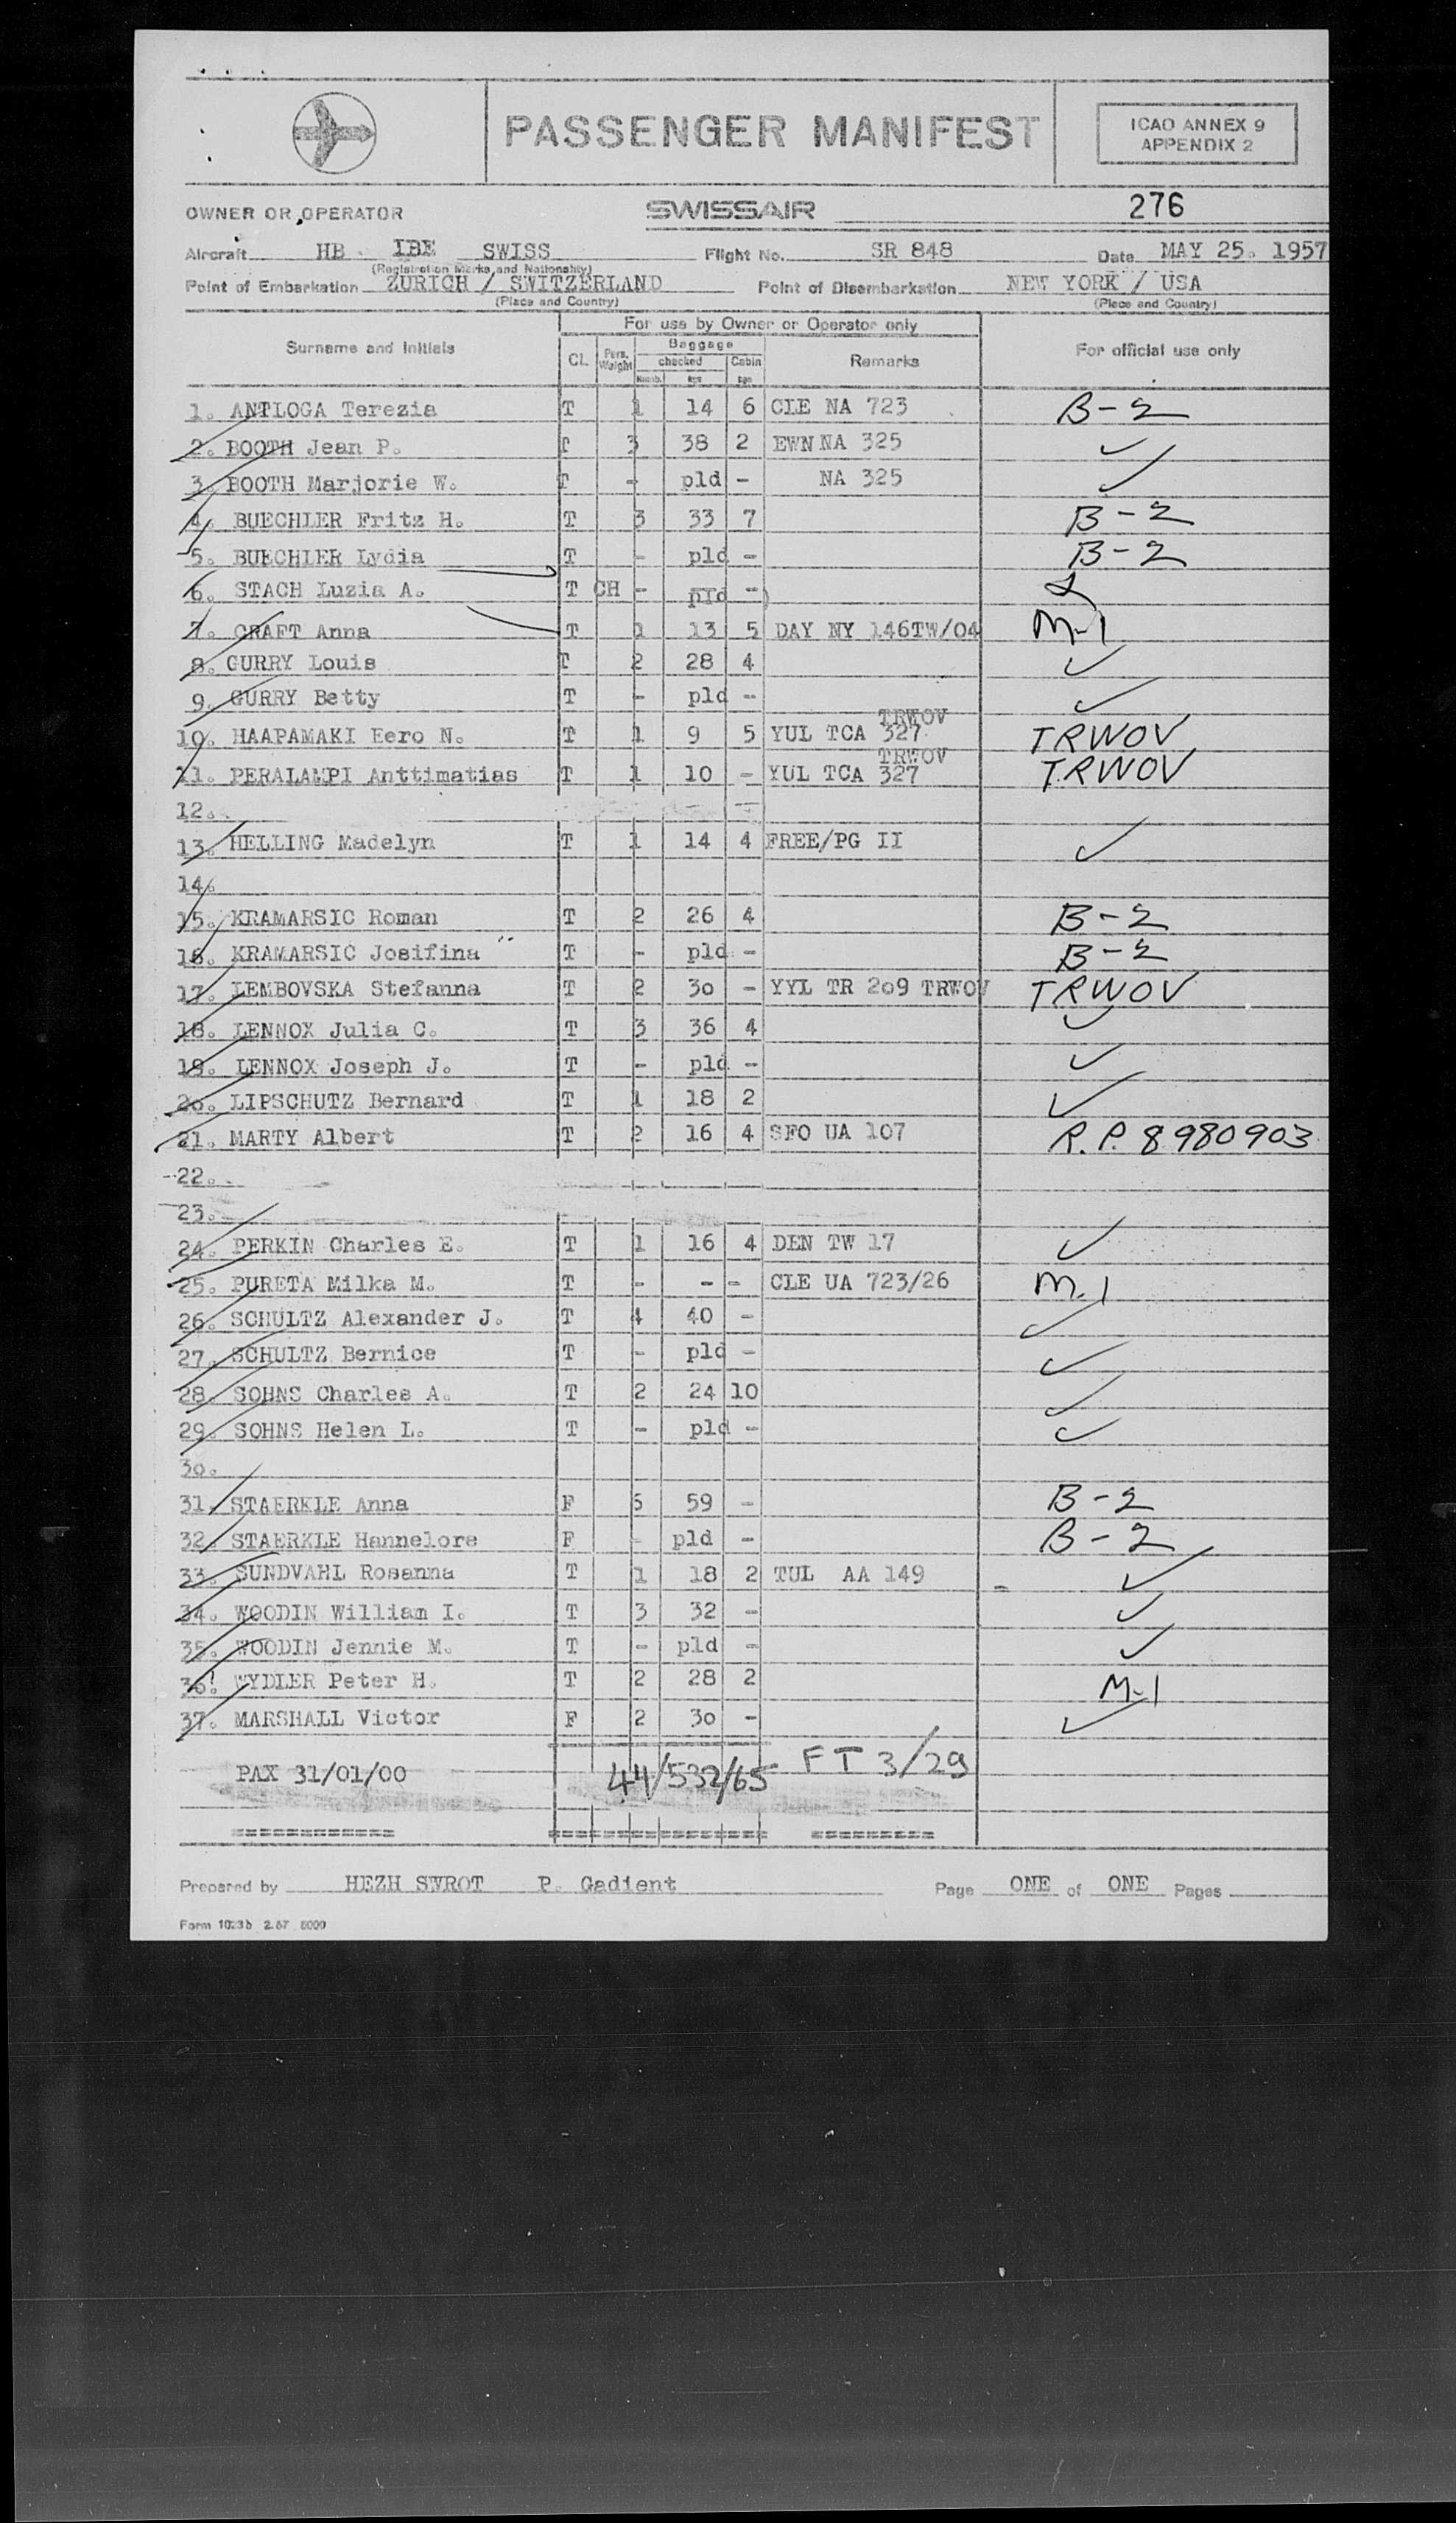 PASSENGER MANIFEST
ICAO ANNEX 9
APPENDIX 2
OWNER OR OPERATOR SWISSAIR 276
Aircraft HB IBE SWISS Flight No. SR 848 Date MAY 25. 1957
(Registration Marks and Nationality)
Point of Embarkation ZURICH / SWITZERLAND Point of Disembarkation NEW YORK / USA
(Place and Country) (Place and Country)
For use by Owner or Operator only
Surname and Initials CL. Pers. Weight Baggage checked Numb. kgs Cabin kgs Remarks For official use only
1. ANTLOGA Terezia T 1 14 6 CLE NA 723 B-2
2. BOOTH Jean P. T 3 38 2 EWN NA 325 ✓
3. BOOTH Marjorie W. T - pld - NA 325 ✓
4. BUECHLER Fritz H. T 3 33 7 B-2
5. BUECHLER Lydia T - pld - B-2
6. STACH Luzia A. T CH - pld -)
7. CRAFT Anna T 1 13 5 DAY NY 146TW/04 M-1
8. GURRY Louis T 2 28 4 ✓
9. GURRY Betty T - pld - ✓
TRWOV
10. HAAPAMAKI Eero N. T 1 9 5 YUL TCA 327 TRWOV
TRWOV
11. PERALAMPI Anttimatias T 1 10 - YUL TCA 327 TRWOV
12.
13. HELLING Madelyn T 1 14 4 FREE/PG II ✓
14.
15. KRAMARSIC Roman T 2 26 4 B-2
16. KRAMARSIC Josifina T - pld - B-2
17. LEMBOVSKA Stefanna T 2 30 - YYL TR 209 TRWOV TRWOV
18. LENNOX Julia C. T 3 36 4 ✓
19. LENNOX Joseph J. T - pld - ✓
20. LIPSCHUTZ Bernard T 1 18 2 ✓
21. MARTY Albert T 2 16 4 SFO UA 107 R.P. 8980903
22.
23.
24. PERKIN Charles E. T 1 16 4 DEN TW 17 ✓
25. PURETA Milka M. T - - - CLE UA 723/26 M.1
26. SCHULTZ Alexander J. T 4 40 - ✓
27. SCHULTZ Bernice T - pld - ✓
28. SOHNS Charles A. T 2 24 10 ✓
29. SOHNS Helen L. T - pld - ✓
30.
31. STAERKLE Anna F 59 - B-2
32. STAERKLE Hannelore F - pld - B-2
33. SUNDVAHL Rosanna T 1 18 2 TUL AA 149 ✓
34. WOODIN William I. T 3 32 - ✓
35. WOODIN Jennie M. T - pld - ✓
36. WYDLER Peter H. T 2 28 2 M-1
37. MARSHALL Victor F 2 30 - ✓
PAX 31/01/00 44/532/65 FT 3/29
============ ================ =========
Prepared by HEZH SWROT P. Gadient Page ONE of ONE Pages
Form 1023b 2.57 5000